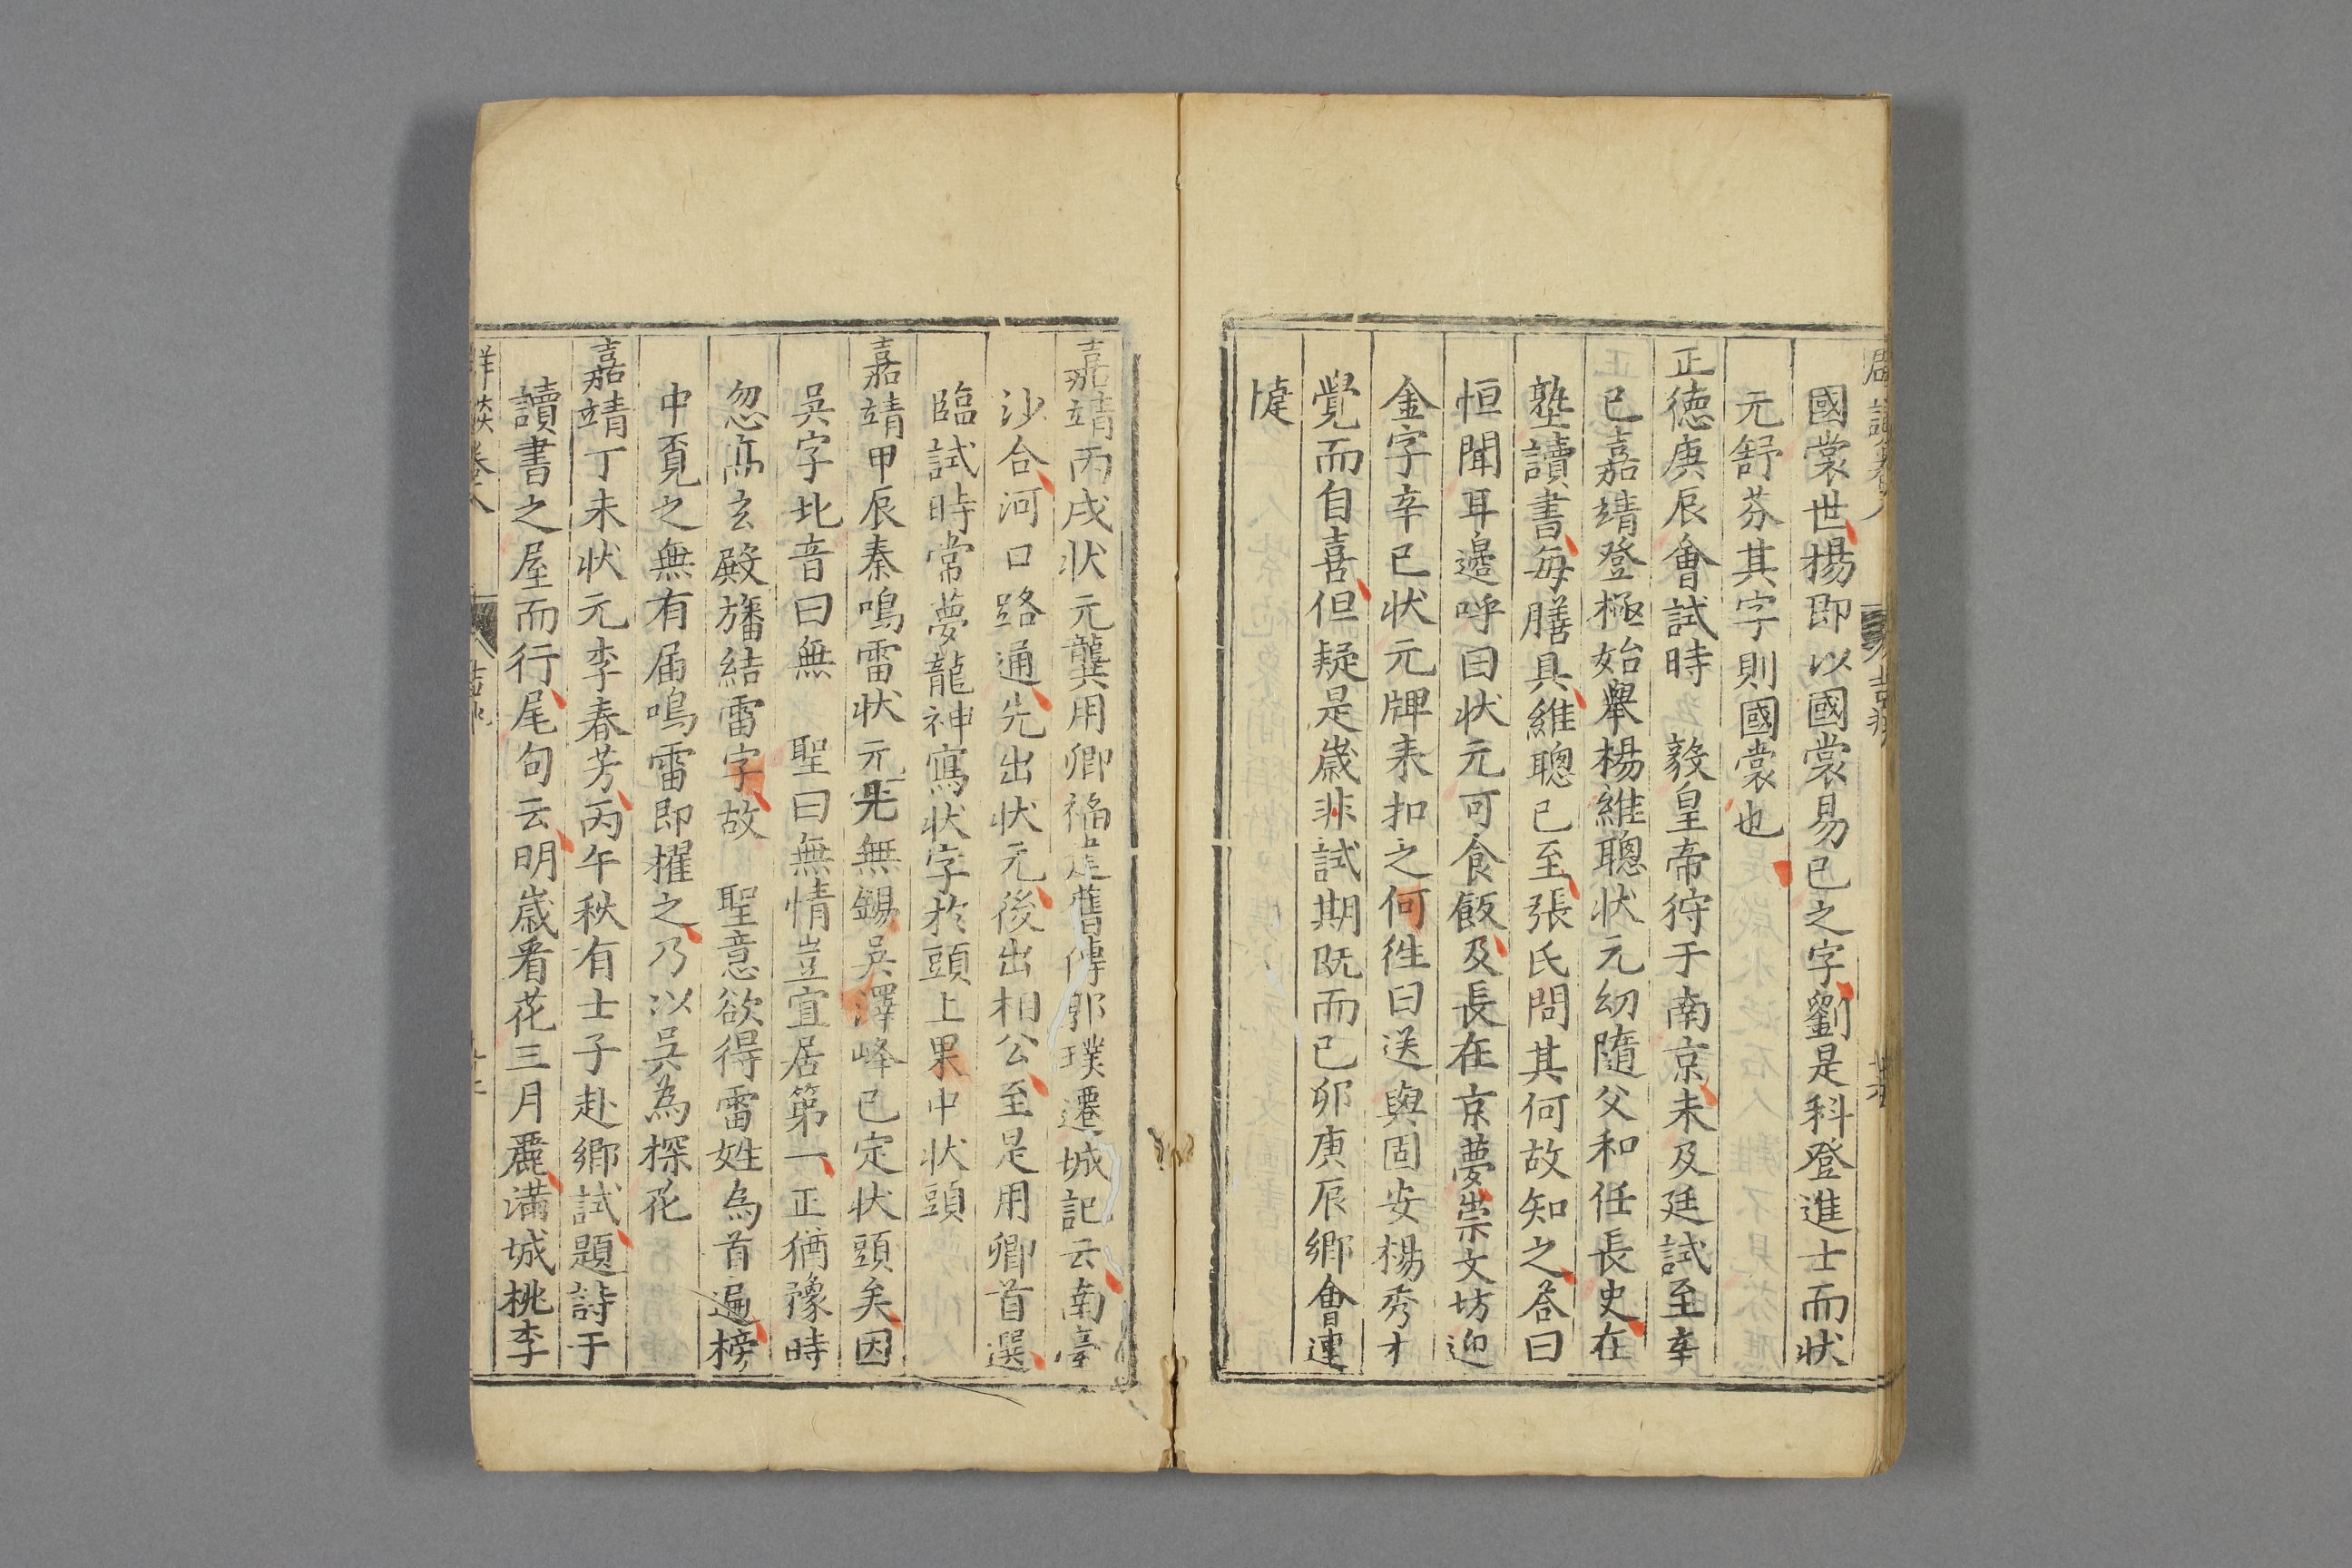 國裳世揚即以國裳易已之字劉是科登進士而狀
元舒芬其字則國裳也
正德庚辰會試時 毅皇帝狩于南京未及廷試至辛
已嘉靖登極始舉楊維聰狀元幼隨父和任長史在
塾讀書每膳具維聰已至張氏問其何故知之答曰
恒聞耳邊呼曰狀元可食飯及長在京夢崇文坊迎
金字辛已狀元牌来扣之何徃曰送與固安楊秀才
覺而自喜但疑是歲非試期既而已卯庚辰鄉會連
㨗
嘉靖丙戌狀元龔用卿福建舊傳郭璞遷城記云南臺
沙合河口路通先出狀元後出相公至是用卿首選
臨試時常夢龍神寫狀字於頭上果中狀頭
嘉靖甲辰秦鳴雷狀元先無錫吳澤峰已定狀頭矣因
吳字北音曰無 聖曰無情豈宜居第一正猶豫時
忽高玄殿旛結雷字故 聖意欲得雷姓為首遍榜
中覔之無有届鳴雷即擢之乃以吳為探花
嘉靖丁未狀元李春芳丙午秋有士子赴鄉試題詩于
讀書之屋而行尾句云明歲看花三月麗满城桃李